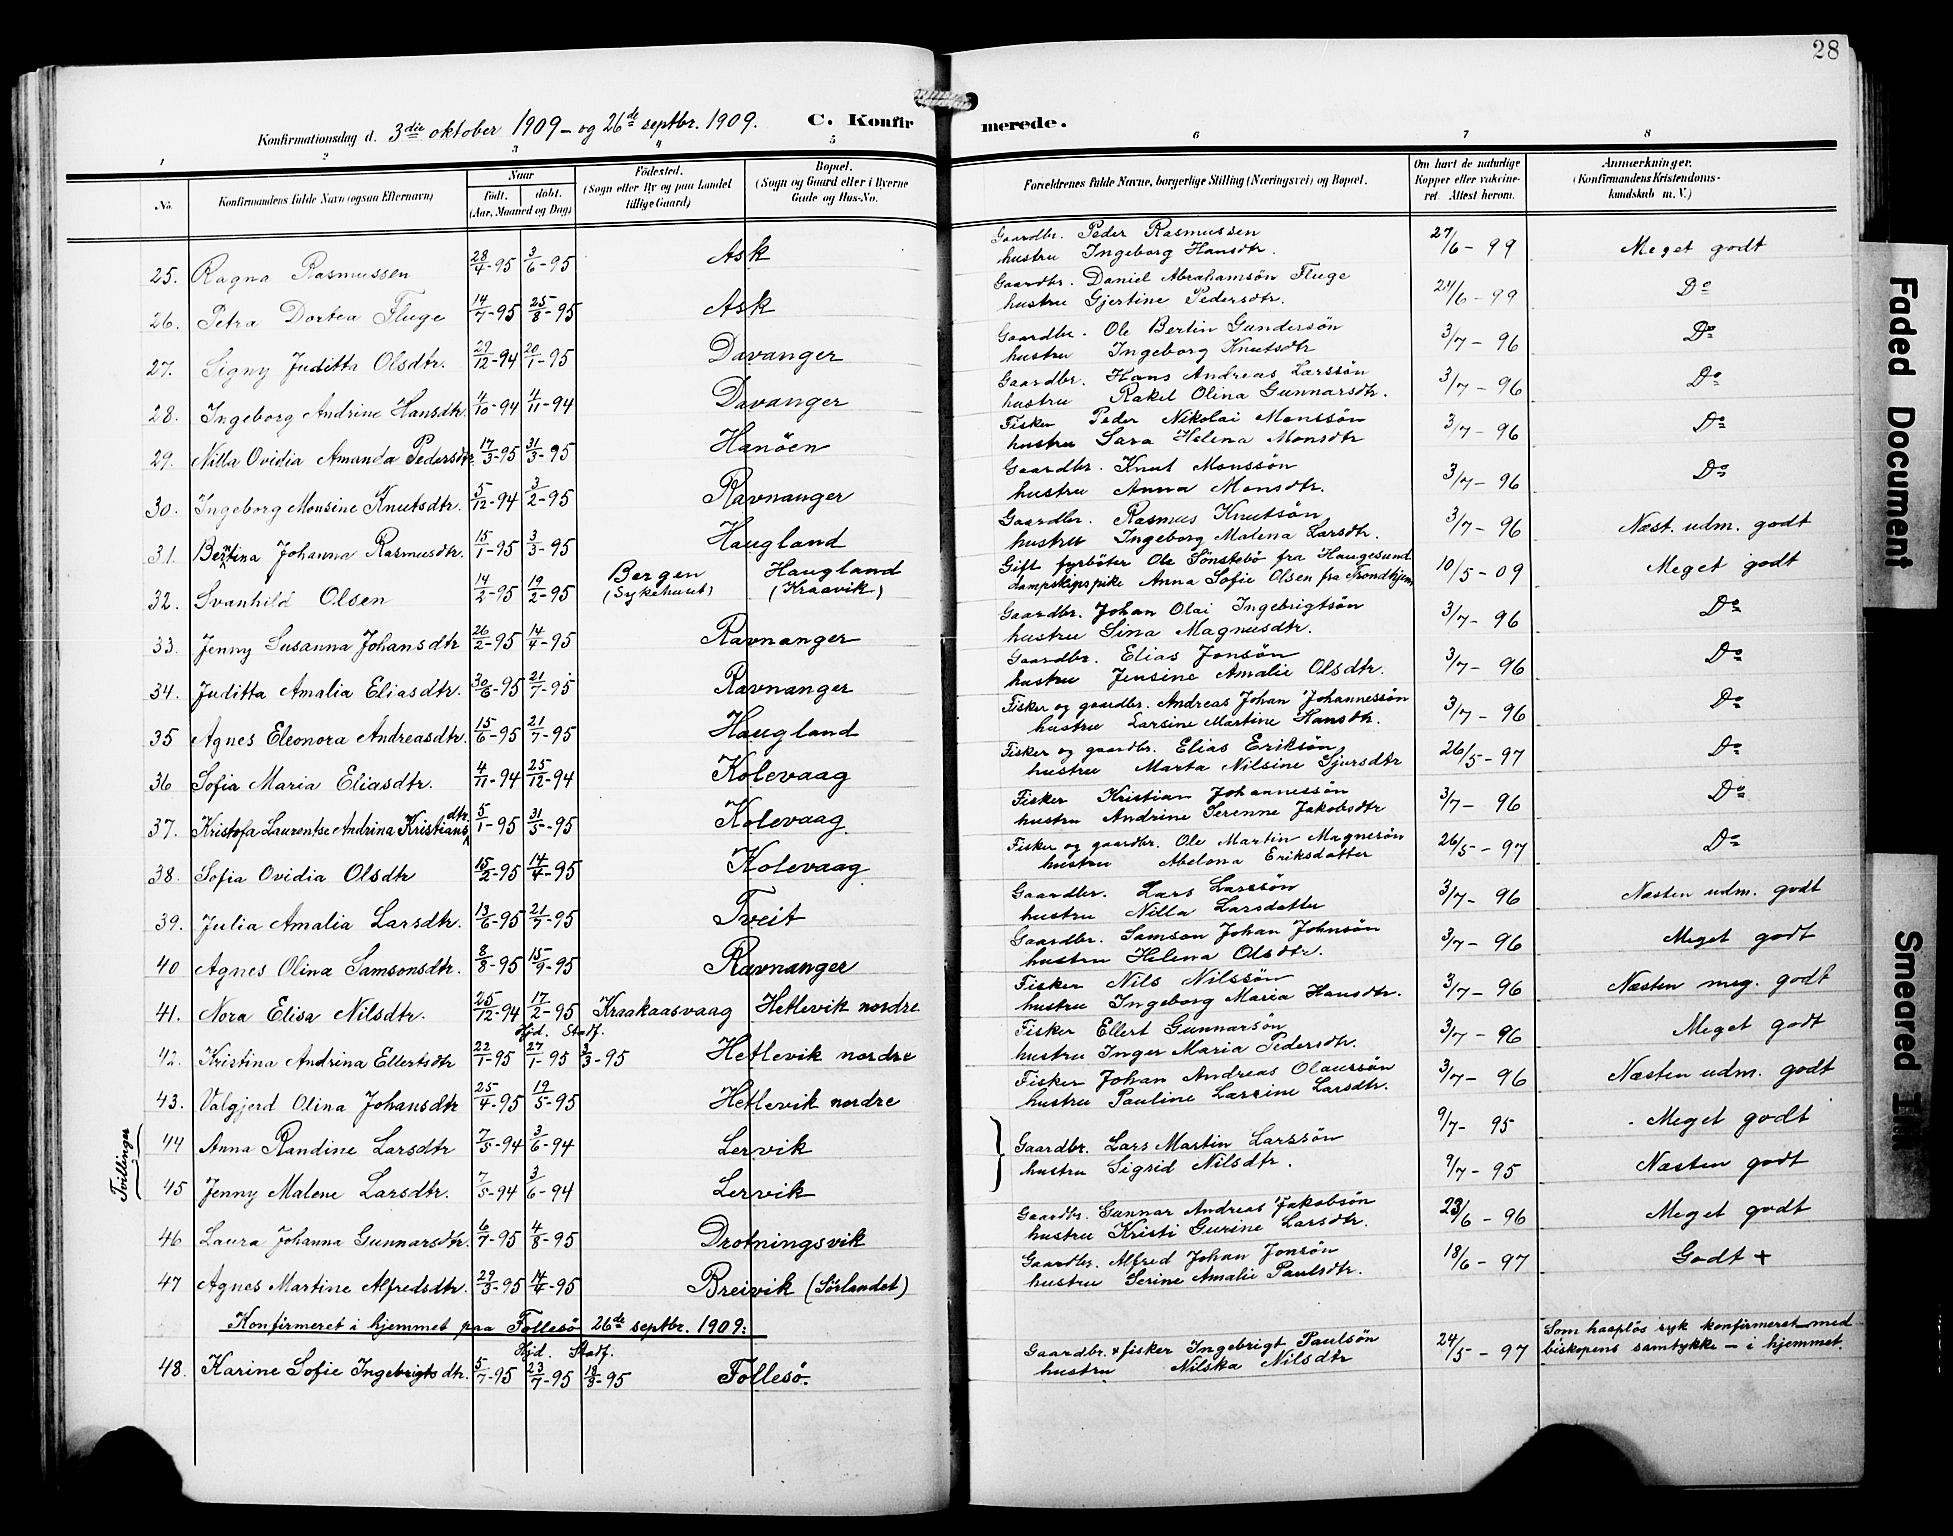 28
Konfirmationsdag d. 3die oktober 1909 - og 26de septbr. 1909. C. Konfirmerede.
1 2 3 4 5 6 7 8
No. Konfirmandens fulde Navn (ogsaa Efternavn) Naar født. døbt. (Aar, Maaned og Dag) Fødested. (Sogn eller By og paa Landet tillige Gaard) Bopæl. (Sogn og Gaard eller i Byerne Gade og Hus-No. Forældrenes fulde Navne, borgerlige Stilling (Næringsvei) og Bopæl. Om havt de naturlige Kopper eller vakcineret. Attest herom. Anmærkninger. (Konfirmandens Kristendomskundskab m. V.)
25. Ragna Rasmussen 28/4-95 3/6-95 Ask Gaardbr. Peder Rasmussen hustru Ingeborg Hansdtr. 27/6-99 Meget godt
26. Petra Dortea Fluge 14/7-95 25/8-95 Ask Gaardbr. Daniel Abrahamsön Fluge hustru Gjertine Pedersdtr. 27/6-99 Do
27. Signy Juditta Olsdtr. 29/12-94 20/1-95 Davanger Gaardbr. Ole Bertin Gundersön hustru Ingeborg Knutsdtr 3/7-96 Do
28. Ingeborg Andrine Hansdtr. 4/10-94 4/11-94 Davanger Gaardbr. Hans Andreas Larssön hustru Rakel Olina Gunnarsdtr. 3/7-96 Do
29. Nilla Ovidia Amanda Pedersdtr 17/3-95 31/3-95 Hanöen Fisker Peder Nikolai Monssön hustru Sara Helena Monsdtr 3/7-96 Do
30. Ingeborg Monsine Knutsdtr. 5/12-94 3/2-95 Ravnanger Gaardbr. Knut Monssön hustru Anna Monsdtr. 3/7-96 Do
31. Berntina Johanna Rasmusdtr. 15/1-95 3/3-95 Haugland Gaardbr. Rasmus Knutsön hustru Ingeborg Malena Larsdtr. 3/7-96 Næst. udm. godt
32. Svanhild Olsen 14/2-95 19/2-95 Bergen (Sykehuset) Haugland (Kraavik) Gift fyrböter Ole Sönstebö fra Haugesund dampskipspike Anna Sofie Olsen fra Trondhjem 10/5-09 Meget godt
33. Jenny Susanna Johansdtr 26/2-95 14/4-95 Ravnanger Gaardbr. Johan Olai Ingebrigtsön hustru Sina Magnusdtr. 3/7-96 Do
34. Juditta Amalia Eliasdtr. 30/6-95 21/7-95 Ravnanger Gaardbr. Elias Jonsön hustru Jensine Amalie Olsdtr. 3/7-96 Do
35 Agnes Eleonora Andreasdtr. 15/6-95 21/7-95 Haugland Fisker og gaardbr. Andreas Johan Johannessön hustru Larsine Martine Hansdtr. 3/7-96 Do
36 Sofia Maria Eliasdtr. 4/11-94 25/12-94 Kolevaag Fisker og gaardbr. Elias Eriksön hustru Marta Nilsine Sjursdtr 26/5-97 Do
37. Kristofa Laurentse Andrina Kristiansdtr. 5/1-95 31/5-95 Kolevaag Fisker Kristian Johannessön hustru Andrine Serenne Jakobsdtr 3/7-96 Do
38. Sofia Ovidia Olsdtr 15/2-95 14/4-95 Kolevaag Fisker og gaardbr. Ole Martin Magnesön hustru Abelona Eriksdatter 26/5-97 Do
39. Julia Amalia Larsdtr. 13/6-95 21/7-95 Tveit Gaardbr. Lars Larssön hustru Nilla Larsdatter 3/7-96 Næsten udm. godt
40 Agnes Olina Samsonsdtr. 8/8-95 15/9-95 Ravnanger Gaardbr. Samson Johan Johnsön hustru Helena Olsdtr. 3/7-96 Meget godt
41. Nora Elisa Nilsdtr. 25/12-94 17/2-95 Kraakaasvaag Hetlevik nordre Fisker Nils Nilssön hustru Ingeborg Maria Hansdtr. 3/7-96 Næsten meg. godt
Hjd. Stadf.
42. Kristina Andrina Ellertsdtr 22/1-95 27/1-95 3/3-95 Hetlevik nordre Fisker Ellert Gunnarsön hustru Inger Maria Pedersdtr. 3/7-96 Meget godt
43. Valgjerd Olina Johansdtr 25/4-95 19/5-95 Hetlevik nordre Fisker Johan Andreas Olaussön hustru Pauline Larsine Larsdtr. 3/7-96 Næsten udm. godt
Tvillinger
44 Anna Randine Larsdtr 7/5-94 3/6-94 Lervik Gaardbr. Lars Martin Larssön hustru Sigrid Nilsdtr. 9/7-95 Meget godt
45 Jenny Malene Larsdtr. 7/5-94 3/6-94 Lervik 9/7-95 Næsten godt
46 Laura Johanna Gunnarsdtr. 6/7-95 4/8-95 Drotningsvik Gaardbr. Gunnar Andreas Jakobsön hustru Kristi Gurine Larsdtr. 23/6-96 Meget godt
47 Agnes Martine Alfredsdtr. 29/3-95 14/4-95 Breivik (Sörlandet) Gaardbr. Alfred Johan Jonsön hustru Serine Amalie Paulsdtr. 18/6-97 Godt +
Konfirmeret i hjemmet paa Follesö 26de septbr. 1909:
Hjd. Stadf.
48. Karine Sofie Ingebrigtsdtr. 5/7-95 23/7-95 18/8-95 Follesö. Gaardbr. & fisker Ingebrigt Paulsön hustru Nilska Nilsdtr 24/5-97 Som haaplös syk konfirmeret med biskopens samtykke - i hjemmet.
Faded Document
Smeared Ink